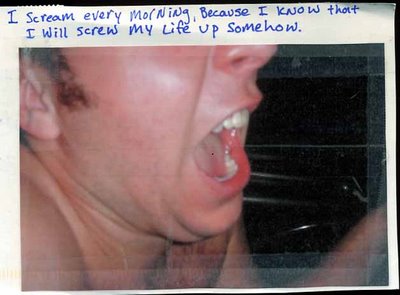 I Scream every Morning, Because I know that
I Will screw My Life up Somehow.